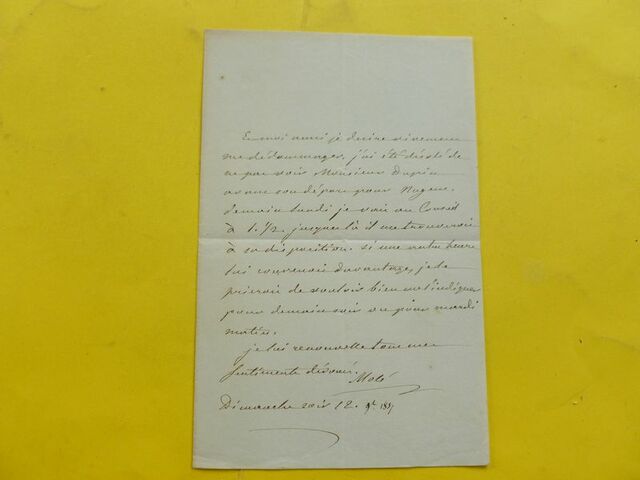 Et moi aussi je désire vivement
me dédommager, j'ai été désolé de
ne pas voir Monsieur Dupin
avant son départ pour
demain lundi je vais au Conseil
à 1. 1/2 jusques là il me trouverait
à sa disposition. si une autre heure
lui convenait davantage, je le
prierais de vouloir bien me l'indiquer
pour demain soir ou pour mardi
matin.
je lui renouvelle tous mes
sentiments dévoués.
Molé
Dimanche soir 12.